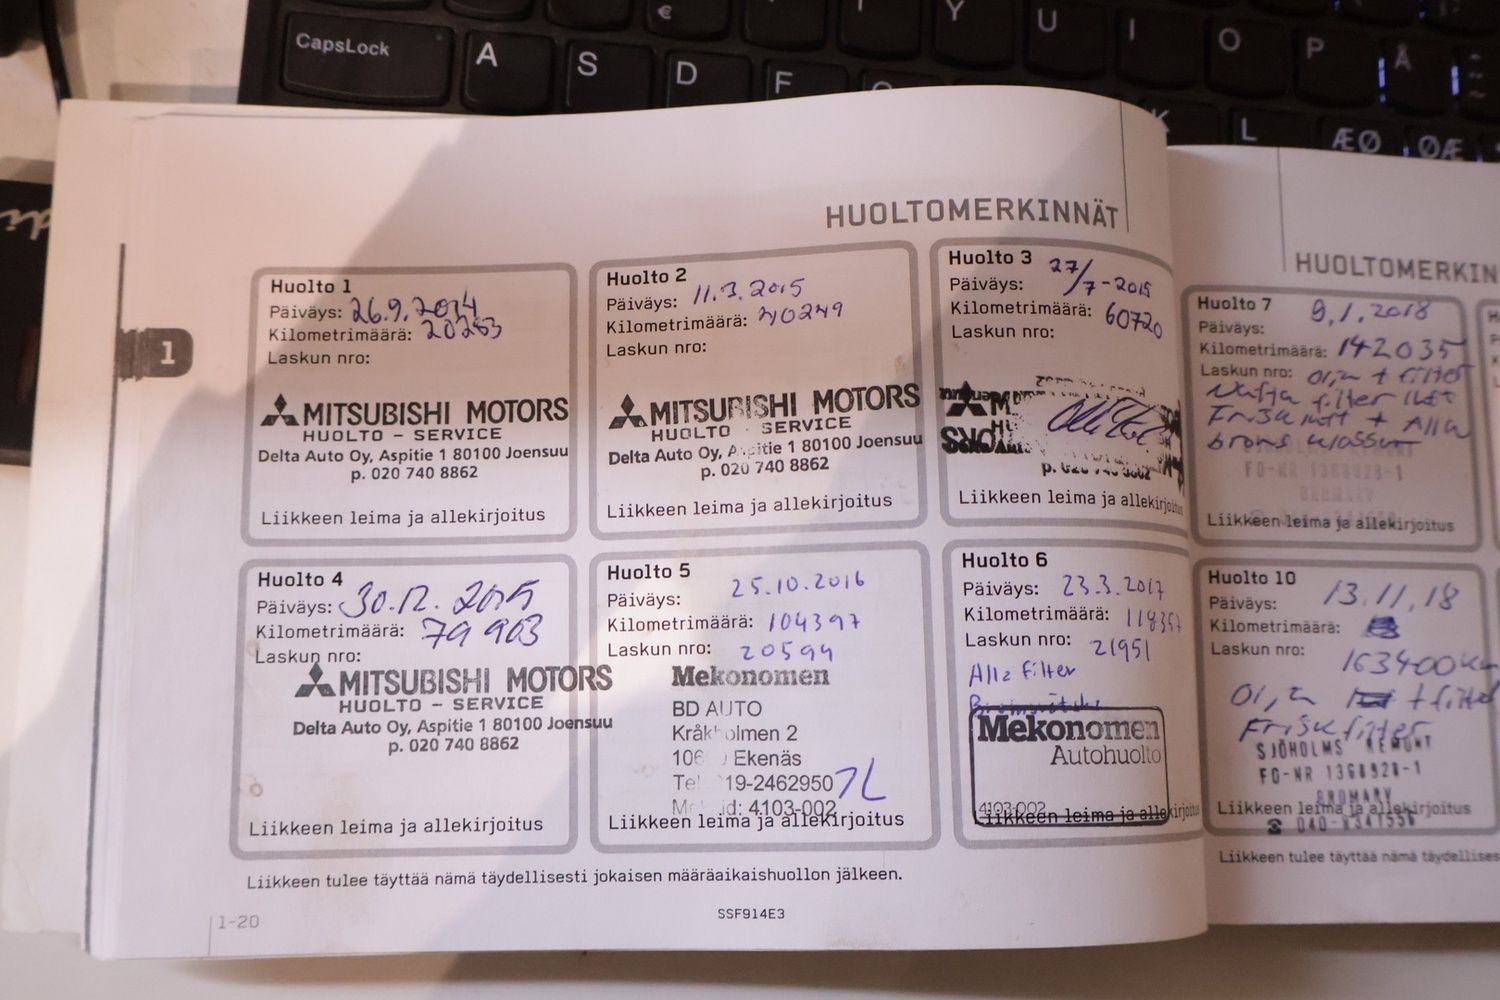 € T Y U I O P Å
CapsLock A S D F K L ÆØ ØÆ
HUOLTOMERKINNÄT
1
Huolto 1
Päiväys: 26.9.2014
Kilometrimäärä: 20283
Laskun nro:
MITSUBISHI MOTORS
HUOLTO - SERVICE
Delta Auto Oy, Aspitie 1 80100 Joensuu
p. 020 740 8862
Liikkeen leima ja allekirjoitus
Huolto 2
Päiväys: 11.3.2015
Kilometrimäärä: 40249
Laskun nro:
MITSUBISHI MOTORS
HUOLTO - SERVICE
Delta Auto Oy, Aspitie 1 80100 Joensuu
p. 020 740 8862
Liikkeen leima ja allekirjoitus
Huolto 3
Päiväys: 27/7-2015
Kilometrimäärä: 60720
Laskun nro:
Liikkeen leima ja allekirjoitus
Huolto 4
Päiväys: 30.12.2015
Kilometrimäärä: 79903
Laskun nro:
MITSUBISHI MOTORS
HUOLTO - SERVICE
Delta Auto Oy, Aspitie 1 80100 Joensuu
p. 020 740 8862
Liikkeen leima ja allekirjoitus
Huolto 5
Päiväys: 25.10.2016
Kilometrimäärä: 104397
Laskun nro: 20594
Mekonomen
BD AUTO
Kråkholmen 2
Ekenäs
019-2462950
4103-002
Liikkeen leima ja allekirjoitus
Huolto 6
Päiväys: 23.3.2017
Kilometrimäärä: 118357
Laskun nro: 21951
Alla filter
Mekonomen
Autohuolto
4103-002
Liikkeen leima ja allekirjoitus
Liikkeen tulee täyttää nämä täydellisesti jokaisen määräaikaishuollon jälkeen.
1-20
SSF914E3
HUOLTOMERKIN
Huolto 7
Päiväys: 9.1.2018
Kilometrimäärä: 142035
Laskun nro: olja + filter
Nafta filter luft
Frisk luft + Alla
broms klossar
FO-NR 1368928-1
BROMARV
Liikkeen leima ja allekirjoitus
Huolto 10
Päiväys: 13.11.18
Kilometrimäärä:
Laskun nro: 163400km
Olja + filter
Frisk filter
SJÖHOLMS REMONT
FO-NR 1368928-1
BROMARV
Liikkeen leima ja allekirjoitus
Liikkeen tulee täyttää nämä täydellises